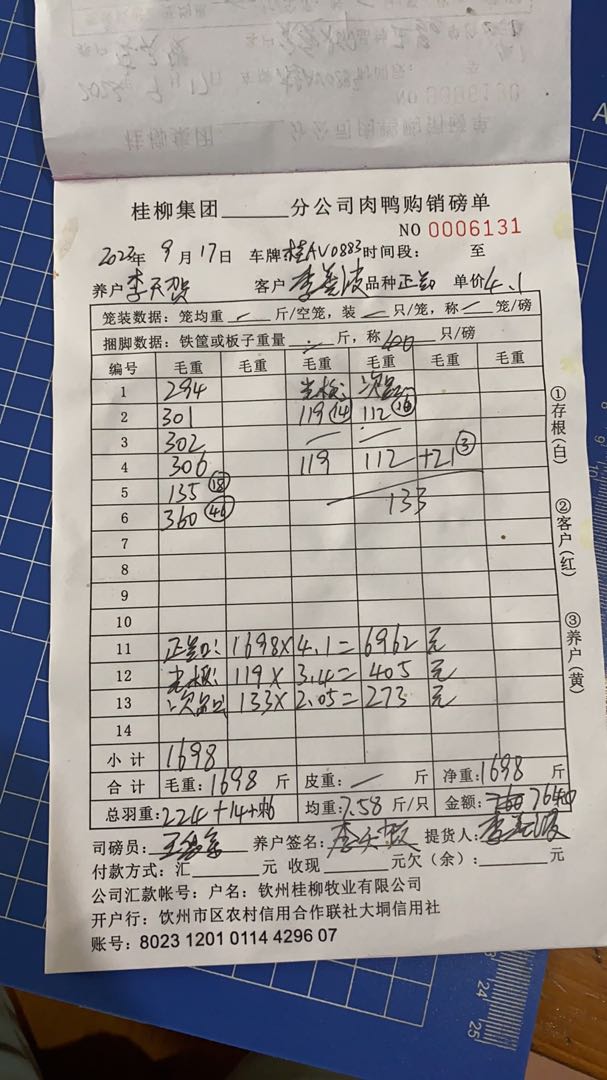 桂柳集团______分公司肉鸭购销磅单
NO 0006131
2022年 9月17日 车牌桂AV0883时间段: 至
养户李天贺 客户李善波品种正品 单价4.1
笼装数据: 笼均重 — 斤/空笼, 装 — 只/笼, 称 — 笼/磅
捆脚数据: 铁筐或板子重量 — 斤, 称 只/磅
编号 毛重 毛重 毛重 毛重 毛重 毛重
1 294 次品
2 301 119 ⑭ 112 ⑯
3 302 — —
4 306 119 112 +21 ③
5 135 ⑱ 133
6 360 ㊻
7
8
9
10
11 正品: 1698×4.1= 6962 元
12 119 × 3.4= 405 元
13 次品: 133×2.05= 273 元
14
小计 1698
合计 毛重: 1698 斤 皮重: — 斤 净重: 1698 斤
总羽重: 224+14+16 均重: 7.58 斤/只 金额: 7640
司磅员: 养户签名: 李天 提货人: 李善波
付款方式: 汇______元 收现______元欠(余):______元
公司汇款帐号: 户名: 钦州桂柳牧业有限公司
开户行: 饮州市区农村信用合作联社大垌信用社
账号: 8023 1201 0114 4296 07
①存根(白)
②客户(红)
③养户(黄)
A
23
24
25